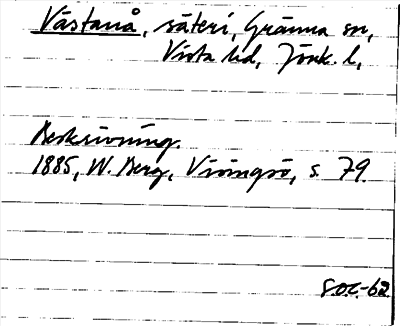 Västanå, säteri, Gränna sn,
Vista hd, Jönk. l,
Beskrivning.
1885, W. Berg, Visingsö, s. 79.
S.O.E.-62